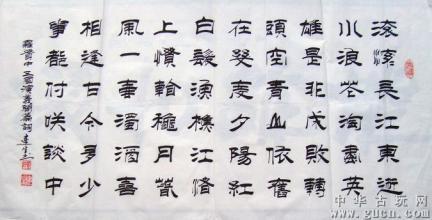 滾滾長江東逝
水浪花淘盡英
雄是非成敗轉
頭空青山依舊
在幾度夕陽紅
白髮漁樵江渚
上慣看秋月春
風一壺濁酒喜
相逢古今多少
事都付笑談中
羅貫中三國演義開篇詞
中华古玩网
www.gucn.com